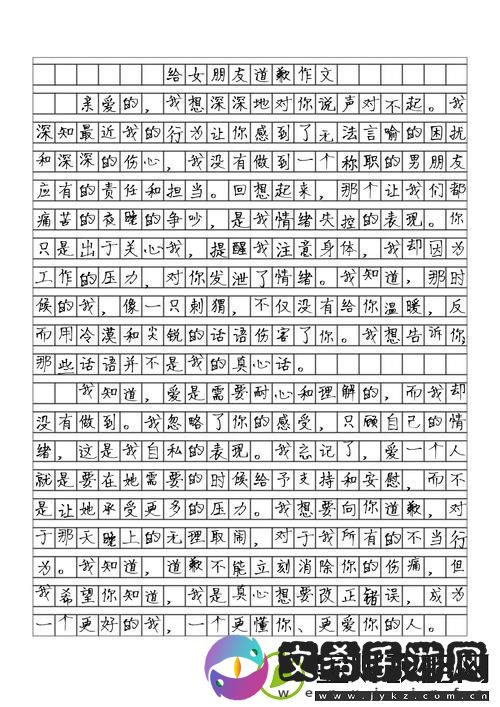 给女朋友道歉作文
亲爱的，我想深深地对你说声对不起。我
深知最近我的行为让你感到了无法言喻的困扰
和深深的伤心，我没有做到一个称职的男朋友
应有的责任和担当。回想起来，那个让我们都
痛苦的夜晚的争吵，是我情绪失控的表现。你
只是出于关心我，提醒我注意身体，我却因为
工作的压力，对你发泄了情绪。我知道，那时
候的我，像一只刺猬，不仅没有给你温暖，反
而用冷漠和尖锐的话语伤害了你。我想告诉你，
那些话语并不是我的真心话。
我知道，爱是需要耐心和理解的，而我却
没有做到。我忽略了你的感受，只顾自己的情
绪，这是我自私的表现。我忘记了，爱一个人
就是要在她需要的时候给予支持和安慰，而不
是让她承受更多的压力。我想要向你道歉，对
于那天晚上的无理取闹，对于我所有的不当行
为。我知道，道歉不能立刻消除你的伤痛，但
我希望你知道，我是真心想要改正错误，成为
一个更好的我，一个更懂你、更爱你的人。
文希手游网
www.jykz.com.cn